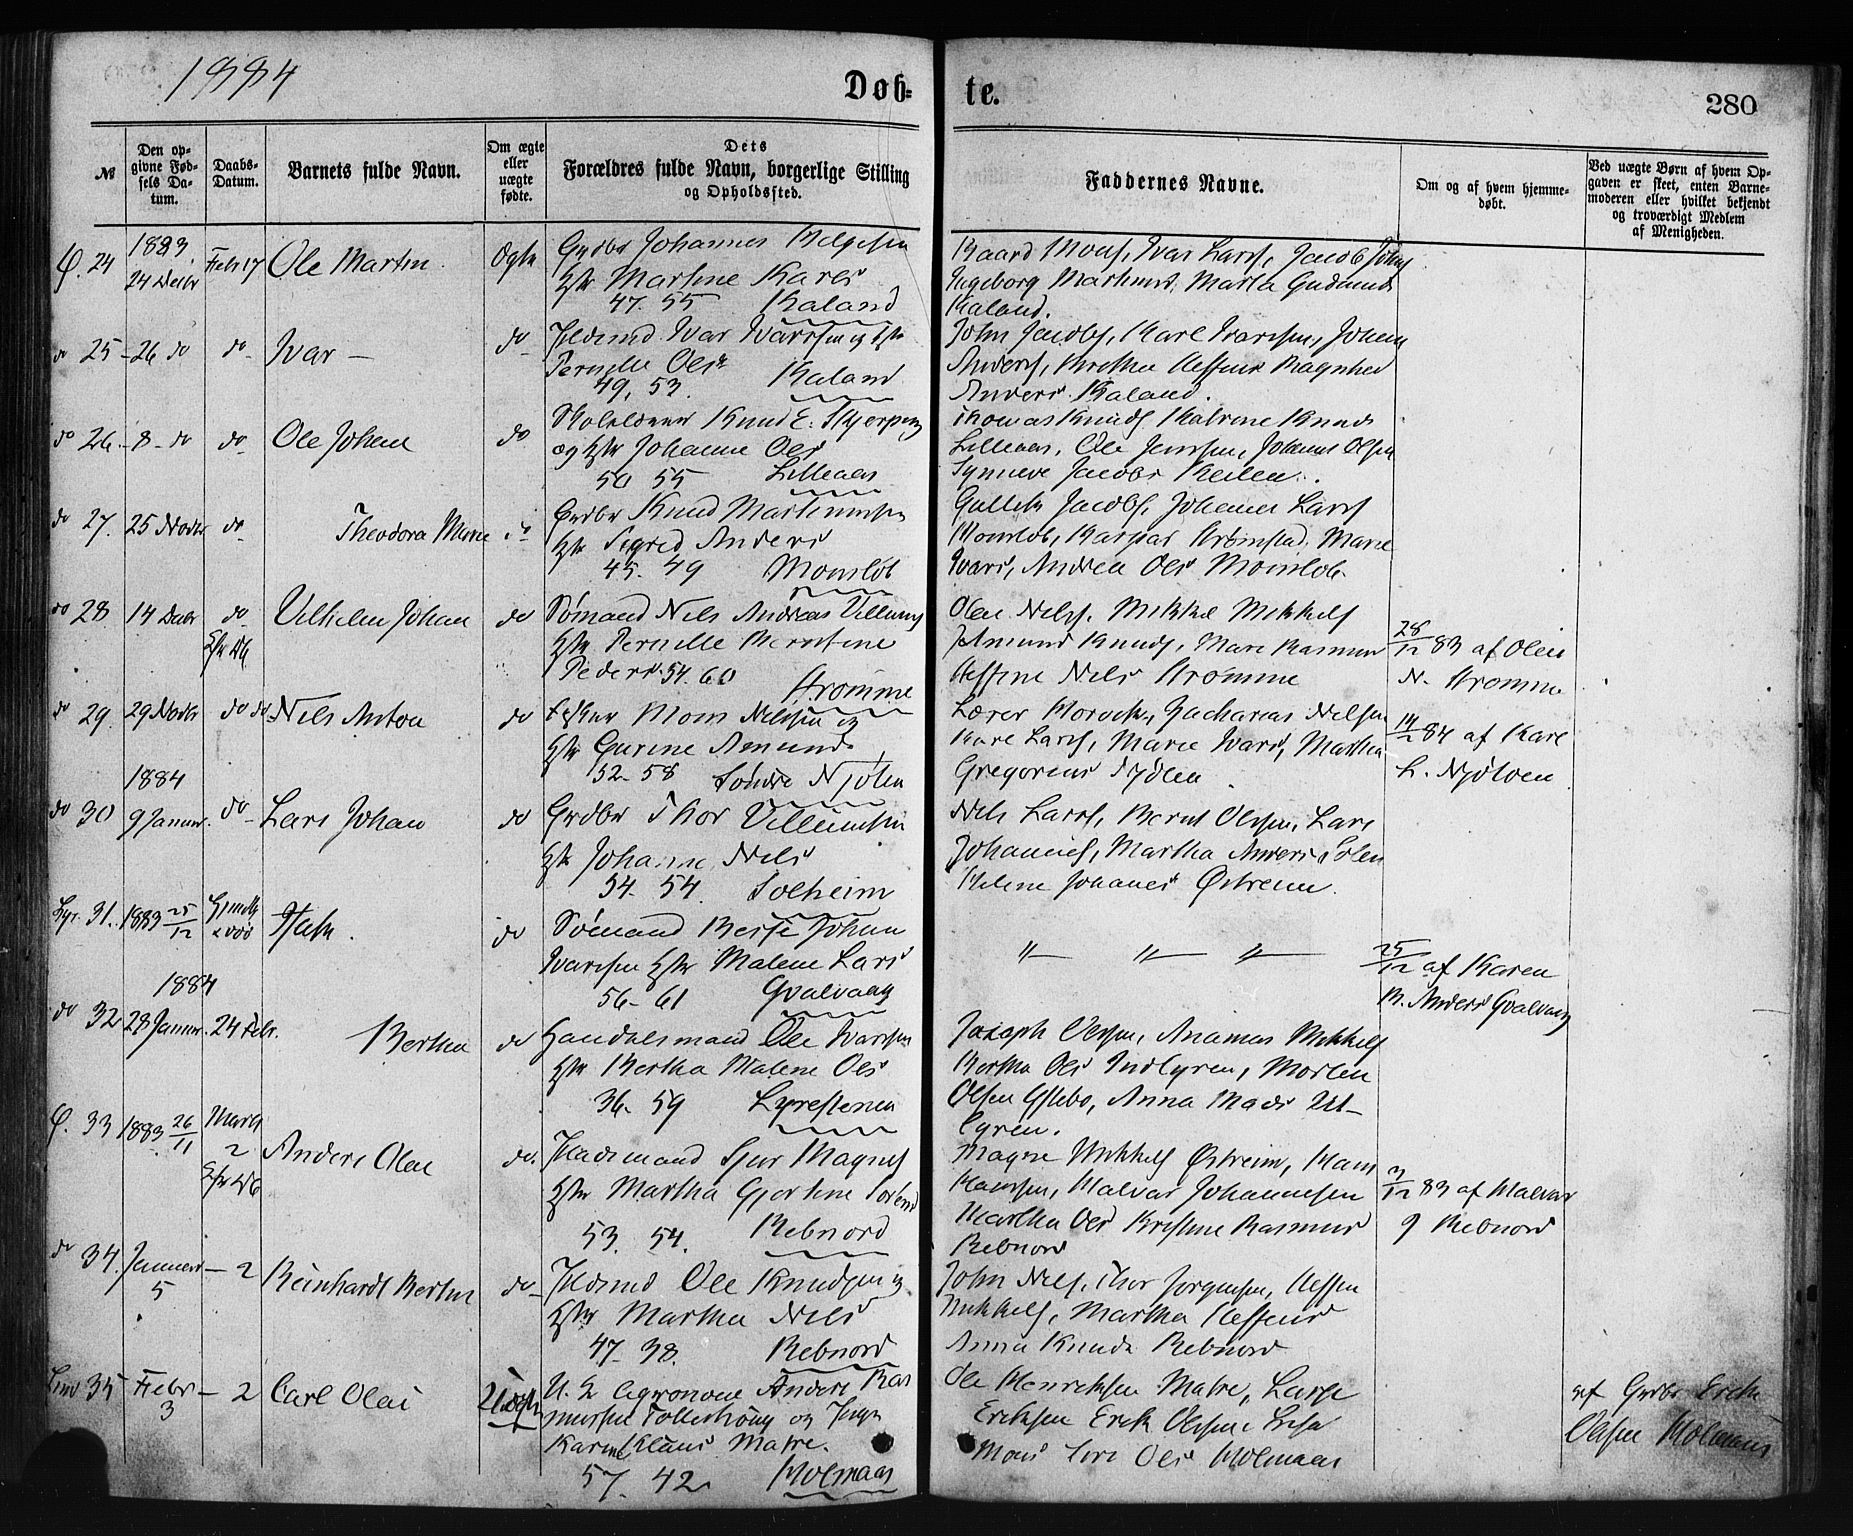 1884
Døb-
te.
280
№
Den op-
givne Fød-
sels Da-
tum.
Daabs-
Datum.
Barnets fulde Navn.
Om ægte
eller
uægte
fødte.
Dets
Forældres fulde Navn, borgerlige Stilling
og Opholdssted.
Faddernes Navne.
Om og af hvem hjemme-
døbt.
Ved uægte Børn af hvem Op-
gaven er skeet, enten Barne-
moderen eller hvilket bekjendt
og troværdigt Medlem
af Menigheden.
24
1883
24 Decbr
Febr 17
Ole Martin
Ægte
Grdbr Johannes Helgesen
Hstr Martine Kares
47. 55 Kaland
Baard Mons, Ivar Lars, Jacob Johns
Ingeborg Martinus, Marta Gudmunds
Kaland.
do 25 - 26 do
do
Ivar -
do
Ivar Ivarssen og Hstr
Pernille Ols
49, 53. Kaland
John Jacobs, Karl Ivarssen, Johan
Anders, Bertha Steffens Ragnhild
Anders Kaland.
do 26 - 8 - do
do
Ole Johan
do
Knud E.
og Hstr Johanne Ols
50 55 Lilleaas
Thomas Knuds Katrine Knuds
Lilleaas, Ole Jenssen, Johannes Olsen
Synneve Jacobs Keilen.
do 27. 25 Novbr
do
Theodora Marie
do
Grdbr Knud Martinussen
Hstr Sigrid Anders
45. 49 Monslob
Gullik Jacobs, Johannes Lars
Monslob, Kaspar Strømstad, Marie
Ivars, Andrea Ols Monslob
do 28 14 Decbr
do
Vilhelm Johan
do
Sømand Nils Andreas Villums
Hstr Pernille Berntine
Peders. 54. 60
Strømme
Olai Nils. Mikkel Mikkels
Amund Knuds, Mari Rasmus
Steffine Nils Strømme
28/12 83 af Olai
N. Strømme
do 29. 29 Novbr
do
Nils Anton
do
Fisker Mons Nilssen og
Hstr Gurine Amunds
52-58 Søndre Njøten
Lærer Horvik, Zacharias Nilsen
Kare Lars, Marie Ivars, Martha
Gregorius Njøten
14/2 84 af Kare
L. Njøten
1884
do 30 9 Januar.
do
Lars Johan
do
Grdbr Thor Villumsen
Hstr Johanne Nils
54. 54. Solheim
Nils Lars, Bernt Olssen, Lars
Johannes, Martha Anders Solem
Helene Johanes Østreim.
31. 1883 25/12
do
Sømand Johan
Ivarssen Hstr Malene Lars
56-61 Gvalvaag
" " "
25/12 af Karen
M. Anders Gvalvaag
1884
do 32 28 Januar. 24 Febr.
Bertha
do
Handelsmand Ole Ivarssen
Hstr Bertha Malene Ols
36. 59 Lyrestenen
Joseph Olssen, Ananias Mikkels
Bertha Ols Indlyren, Morten
Olsen Ystebo, Anna Mads Ut-
lyren.
33 1883 26/11
Marts
2
Anders Olai
do.
Sjur Magnes
Hstr Martha Gjertine
53. 54. Rebnord
Magne Mikkels Østreim, Hans
Hanssen, Halvar Johannesen
Martha Ols Kristine Rasmus
Rebnord
2/12 83 af Halvar
J Rebnord
do 34. Januar
5
- 2
Reinhardt Bertin
do
Ole Knudsen og
Hstr Martha Nils
47-38. Rebnord
John Nils, Thor Jørgensen, Steffen
Mikkels, Martha Steffens
Anna Knuds Rebnord
35 Febr
3
- 2
Carl Olai
Uægte
Anders Ras
mussen og
Karine Klaus Matre.
57. 42 Holmaas
Ole Henriksen Matre, Lasse
Eriksen Erik Olssen, Lisa
Mons Siri Ols Holmaas
af Grdbr Erik
Olsen Holmaas